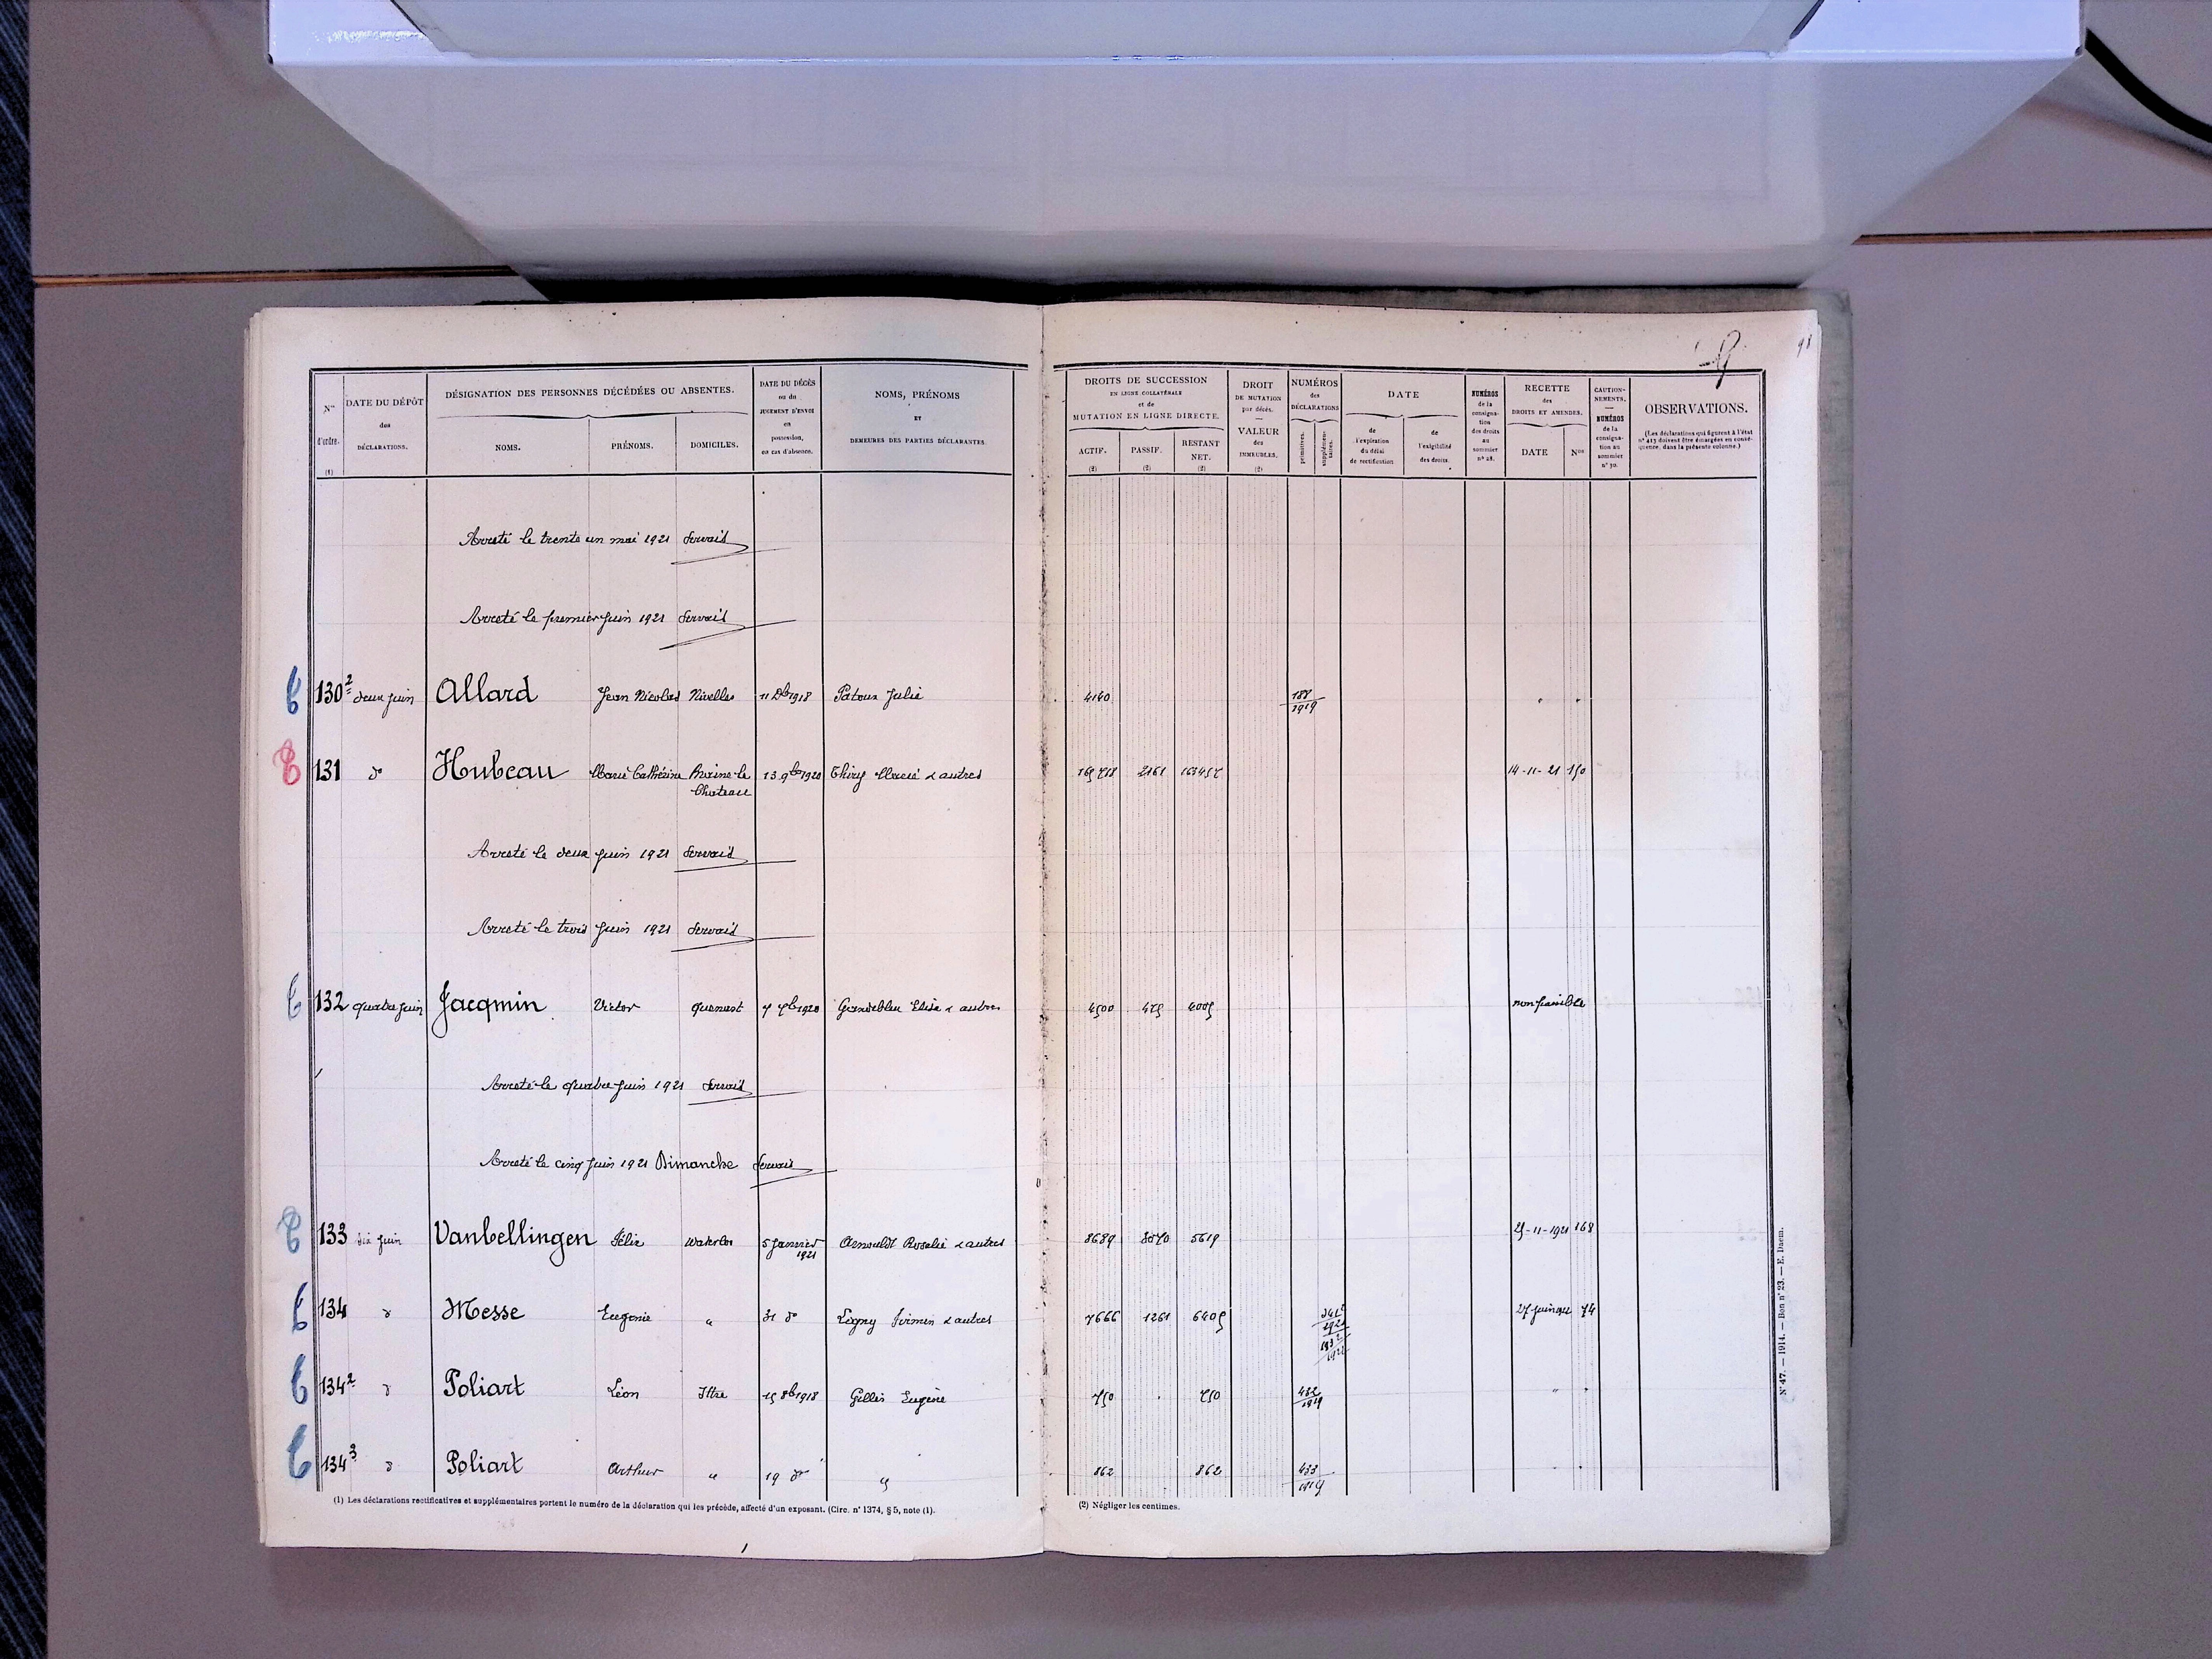 98
Nos d'ordre. (1)
DATE DU DÉPÔT des DÉCLARATIONS.
DÉSIGNATION DES PERSONNES DÉCÉDÉES OU ABSENTES.
NOMS. PRÉNOMS. DOMICILES.
DATE DU DÉCÈS ou du JUGEMENT D'ENVOI en possession, en cas d'absence.
NOMS, PRÉNOMS ET DEMEURES DES PARTIES DÉCLARANTES.
DROITS DE SUCCESSION EN LIGNE COLLATÉRALE et de MUTATION EN LIGNE DIRECTE.
ACTIF. (2) PASSIF. (2) RESTANT NET. (2)
DROIT DE MUTATION par décès. — VALEUR des IMMEUBLES. (2)
NUMÉROS des DÉCLARATIONS
primitives. supplémentaires.
DATE
de l'expiration du délai de rectification
de l'exigibilité des droits.
NUMÉROS de la consignation des droits au sommier n° 28.
RECETTE des DROITS ET AMENDES.
DATE Nos
CAUTIONNEMENTS. — NUMÉROS de la consignation au sommier n° 30.
OBSERVATIONS.
(Les déclarations qui figurent à l'état n° 413 doivent être émargées en conséquence, dans la présente colonne.)
Arreté le trente un mai 1921 Servais
Arreté le premier juin 1921 Servais
130² deux juin Allard Jean Nicolas Nivelles 11 Xb 1918 Patoux Julie 4140 188/1919 " "
131 d° Hubeau Marie Cathérine Braine-le Chateau 13 9b 1920 Thiry Marie & autres 2161 14-11-21 150
Arreté le deux juin 1921 Servais
Arreté le trois juin 1921 Servais
132 quatre juin Jacqmin Victor Quenast 1920 Elisa & autres 4500 non passible
Arreté le quatre juin 1921 Servais
Arreté le cinq juin 1921 Dimanche Servais
133 six juin Vanbellingen Félix Waterloo 5 Janvier 1921 Arnould Rosalie & autres 8689 5619 25-11-1921 168
134 d° Messe Eugenie " 31 d° Légny Firmin & autres 7666 1261 6405 27 juin 74
134² d° Poliart Léon Ittre 15 8b 1918 Gillis Eugène 750 " 750 432/1919 " "
134³ d° Poliart Arthur " 19 d° " 862 862 433/1919 " "
(1) Les déclarations rectificatives et supplémentaires portent le numéro de la déclaration qui les précède, affecté d'un exposant. (Circ. n° 1374, § 5, note (1).
(2) Négliger les centimes.
N° 47. — 1914. — Bon n° 23. — E. Daem.